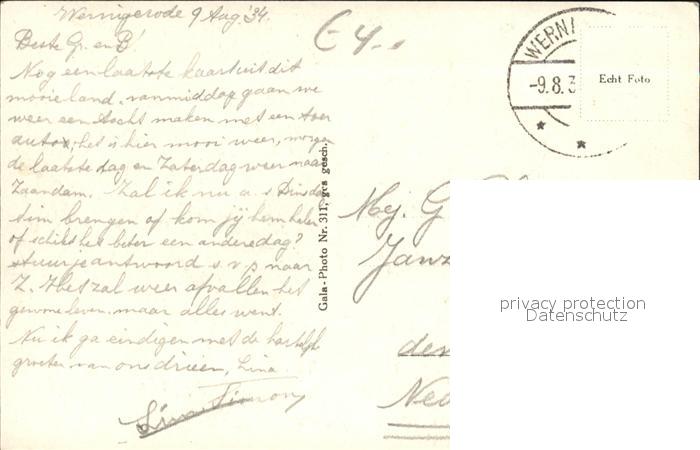 Wernigerode 9 Aug. '34.
Beste Gr. en B!
Nog een laatste kaart uit dit
mooie land. vanmiddag gaan we
weer een tocht maken met een toer
auto, het is hier mooi weer, morgen
de laatste dag en Zaterdag weer naar
Zaandam. Zal ik nu a.s Dinsdag
tim brengen of kom jij hem halen
of schikt het beter een andere dag?
stuur je antwoord s.v.p naar
Z. Het zal weer afvallen het
gewone leven. maar alles went.
Nu ik ga eindigen met de hartelijke
groeten van ons drieën, Lina
Simon
Gala-Photo Nr. 311, ges gesch.
WERNI
-9.8.3
Echt Foto
Mej. G
Janz
den
Ned
privacy protection
Datenschutz